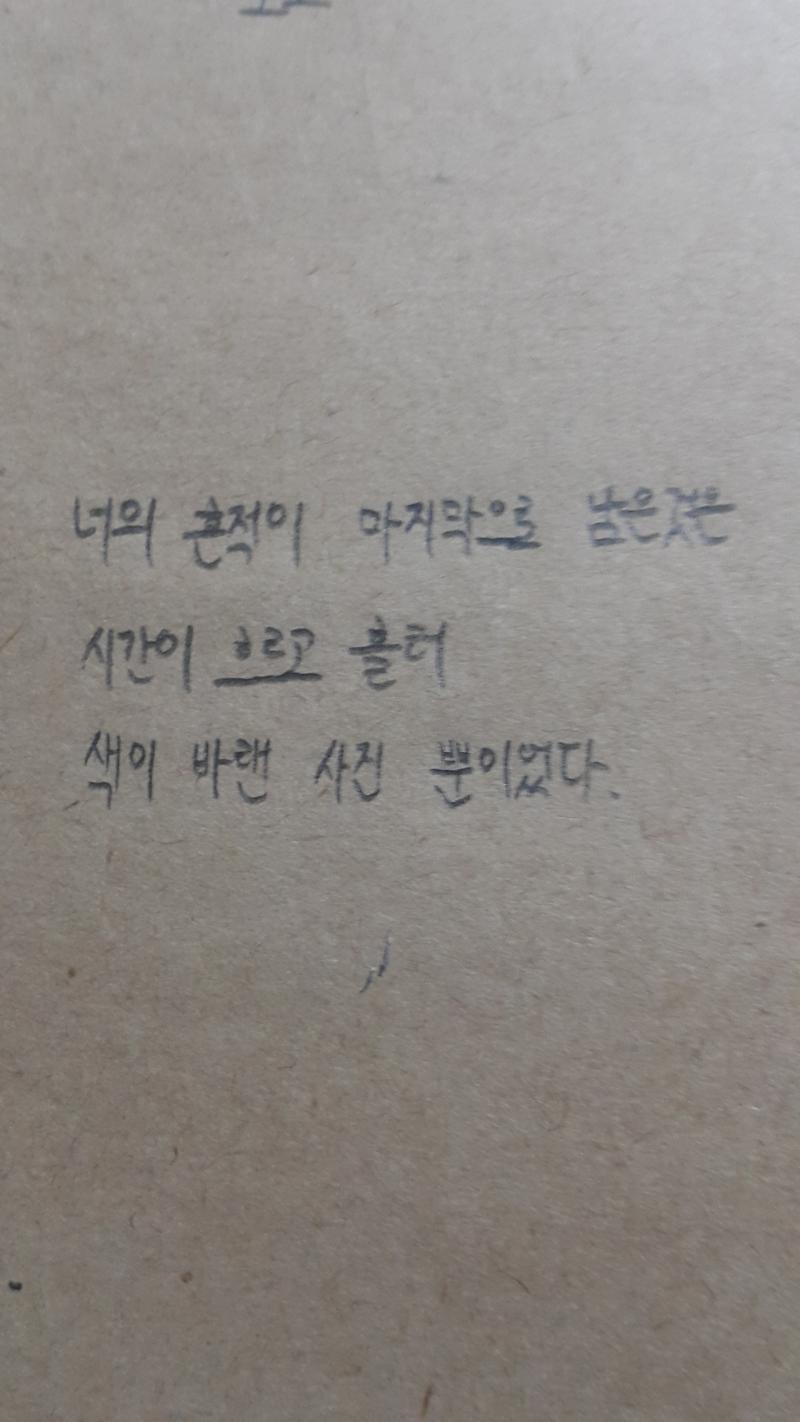 너의 흔적이 마지막으로 남은것은
시간이 흐르고 흘러
색이 바랜 사진 뿐이었다.